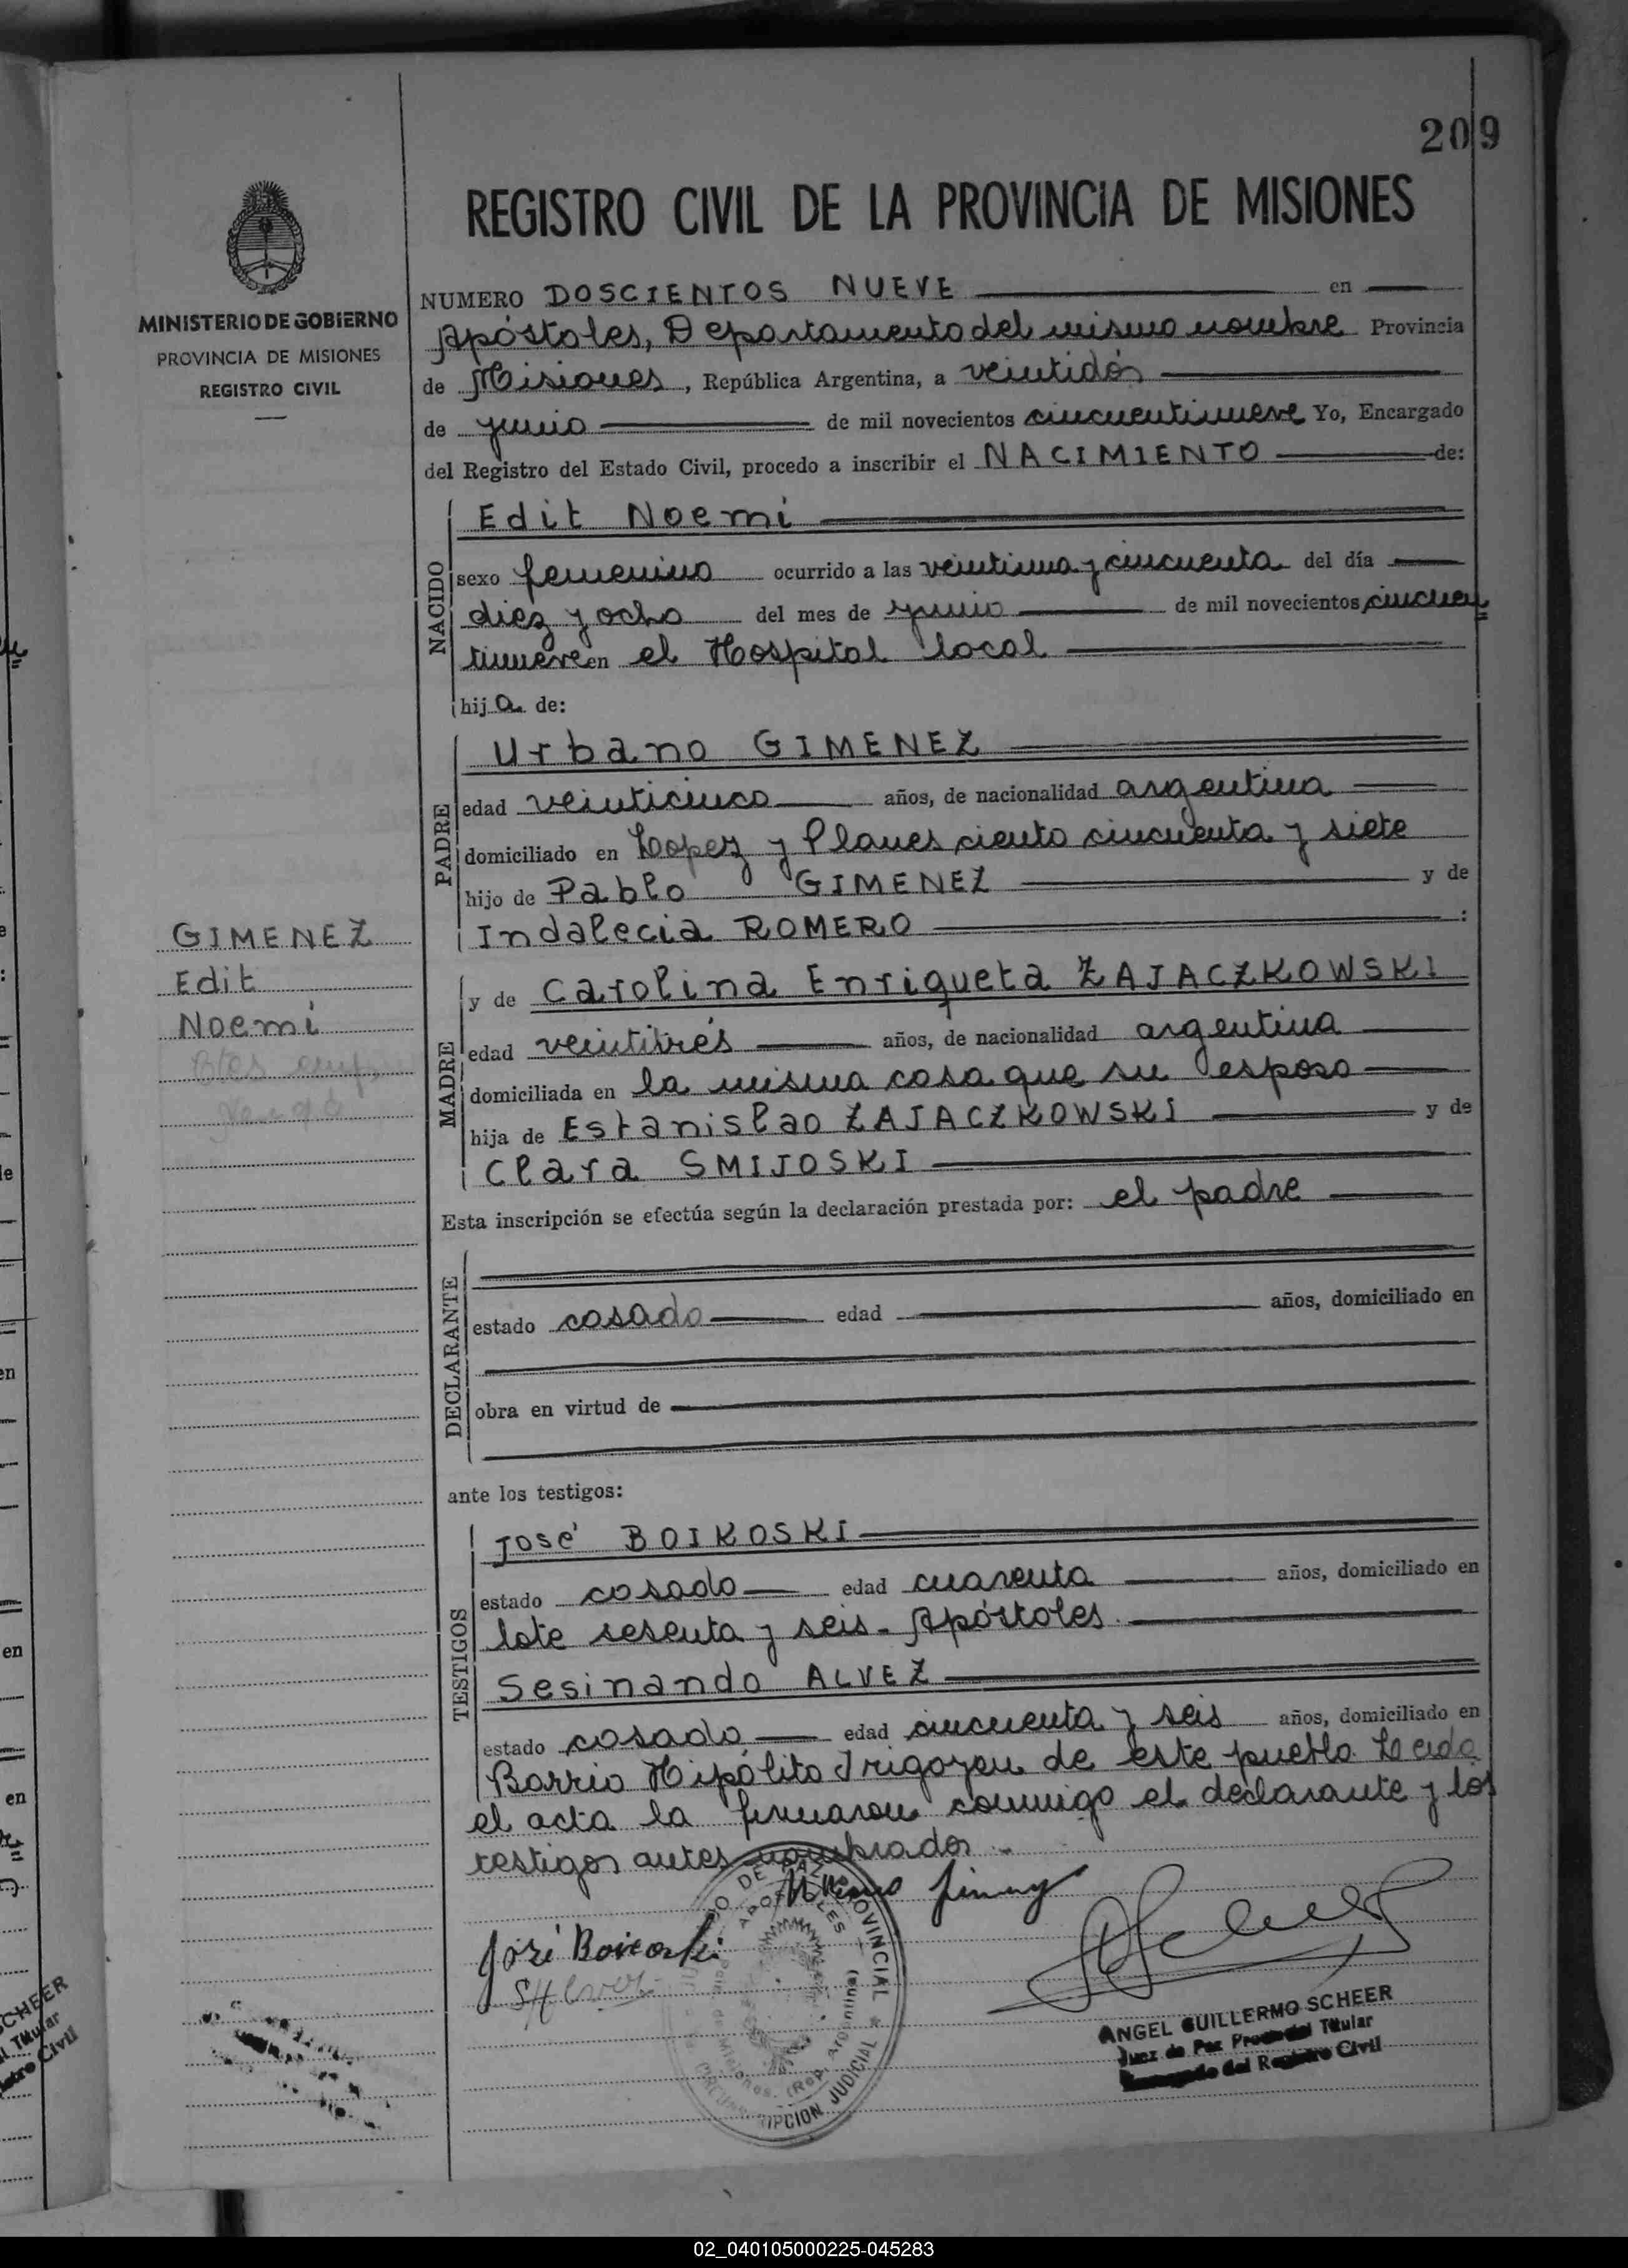 209
REGISTRO CIVIL DE LA PROVINCIA DE MISIONES
MINISTERIO DE GOBIERNO
PROVINCIA DE MISIONES
REGISTRO CIVIL
NUMERO DOSCIENTOS NUEVE en
Apóstoles, Departamento del mismo nombre Provincia
de Misiones, República Argentina, a veintidós
de junio de mil novecientos cincuentinueve Yo, Encargado
del Registro del Estado Civil, procedo a inscribir el NACIMIENTO de:
NACIDO
Edit Noemi
sexo femenino ocurrido a las veintiuna y cincuenta del día
diez y ocho del mes de junio de mil novecientos cincuen
tinueve en el Hospital local
hija de:
PADRE
Urbano GIMENEZ
edad veinticinco años, de nacionalidad argentina
domiciliado en Lopez y Planes ciento cincuenta y siete
hijo de Pablo GIMENEZ y de
Indalecia ROMERO :
GIMENEZ
Edit
Noemi
MADRE
y de Carolina Enriqueta ZAJACZKOWSKI
edad veintitrés años, de nacionalidad argentina
domiciliada en la misma casa que su esposo
hija de Estanislao ZAJACZKOWSKI y de
Clara SMIJOSKI
Esta inscripción se efectúa según la declaración prestada por: el padre
DECLARANTE
estado casado edad años, domiciliado en
obra en virtud de
ante los testigos:
TESTIGOS
José BOIKOSKI
estado casado edad cuarenta años, domiciliado en
lote sesenta y seis - Apóstoles
Sesinando ALVEZ
estado casado edad cincuenta y seis años, domiciliado en
Barrio Hipólito Irigoyen de este pueblo. Leida
el acta la firmaron conmigo el declarante y los
testigos antes nombrados.-
José Boicoski
ANGEL GUILLERMO SCHEER
Juez de Paz Provincial Titular
Encargado del Registro Civil
02_040105000225-045283